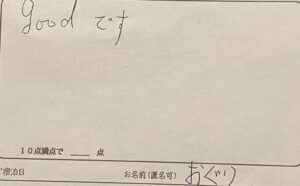 good です
10点満点で ____ 点
ご宿泊日 お名前(匿名可) おぐり